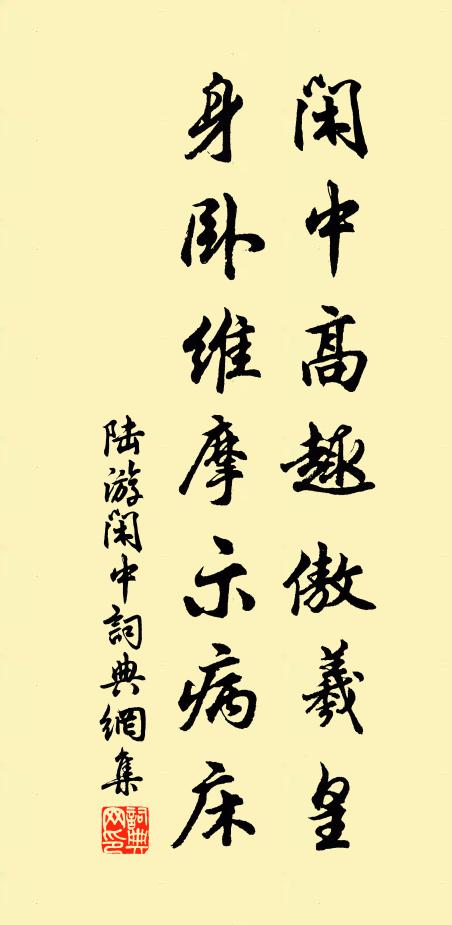 闲中高趣傲羲皇
身卧维摩示病床
陆游闲中詞典網集
詞典网印